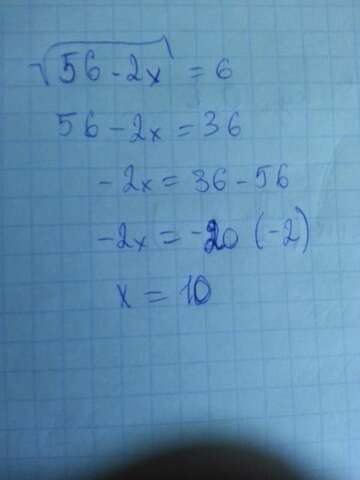 √56 - 2x = 6
56 - 2x = 36
- 2x = 36 - 56
-2x = -20 (-2)
x = 10